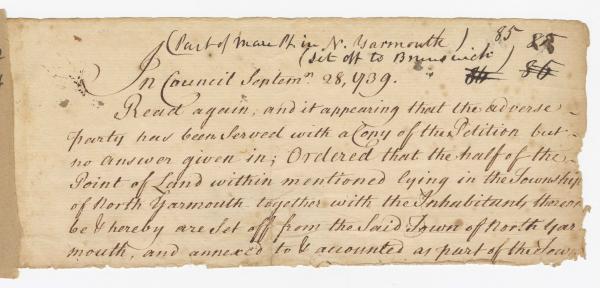 (Part of Mare Pt in N. Yarmouth) 85 85
(Set off to Brunswick) 86 86
In Council Septemr. 28, 1739.
Read again, and it appearing that the adverse
party has been Served with a Copy of the Petition but
no answer given in; Ordered that the half of the
Point of Land within mentioned lying in the Township
of North Yarmouth together with the Inhabitants thereon
be & hereby are Set off from the Said Town of North Yar
mouth, and annexed to & accounted as part of the Town